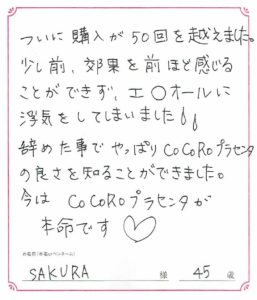 ついに購入が50回を越えました。
少し前、効果を前ほど感じる
ことができず、エ○オールに
浮気をしてしまいました!!
辞めた事でやっぱりCoCoRoプラセンタ
の良さを知ることができました。
今はCoCoRoプラセンタが
本命です♡
お名前(本名orペンネーム)
SAKURA 様 45 歳